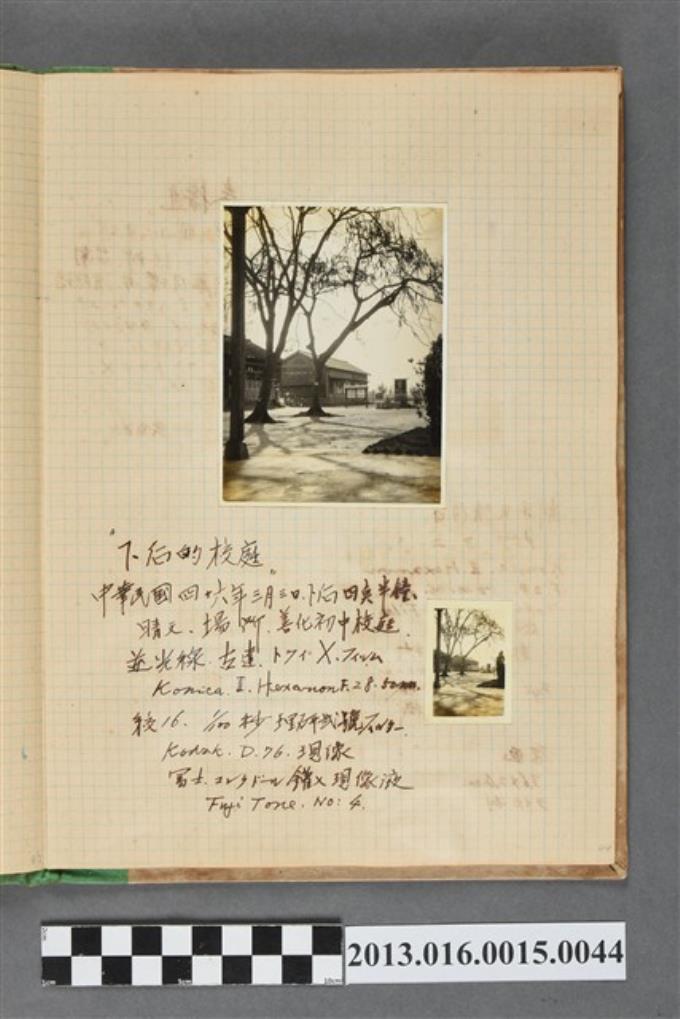 "下后的校庭"
中華民國四十六年三月三日.下后四点半鐘、
晴天.場所.善化初中校庭.
逆光線.古達.トライX.フィルム
Konica.Ⅱ.Hexanon F.2.8.50mm.
絞16. 1/100秒
Kodak.D.76.現像
冨士.コレクトール 現像液
Fuji Tone. No: 4.
2013.016.0015.0044